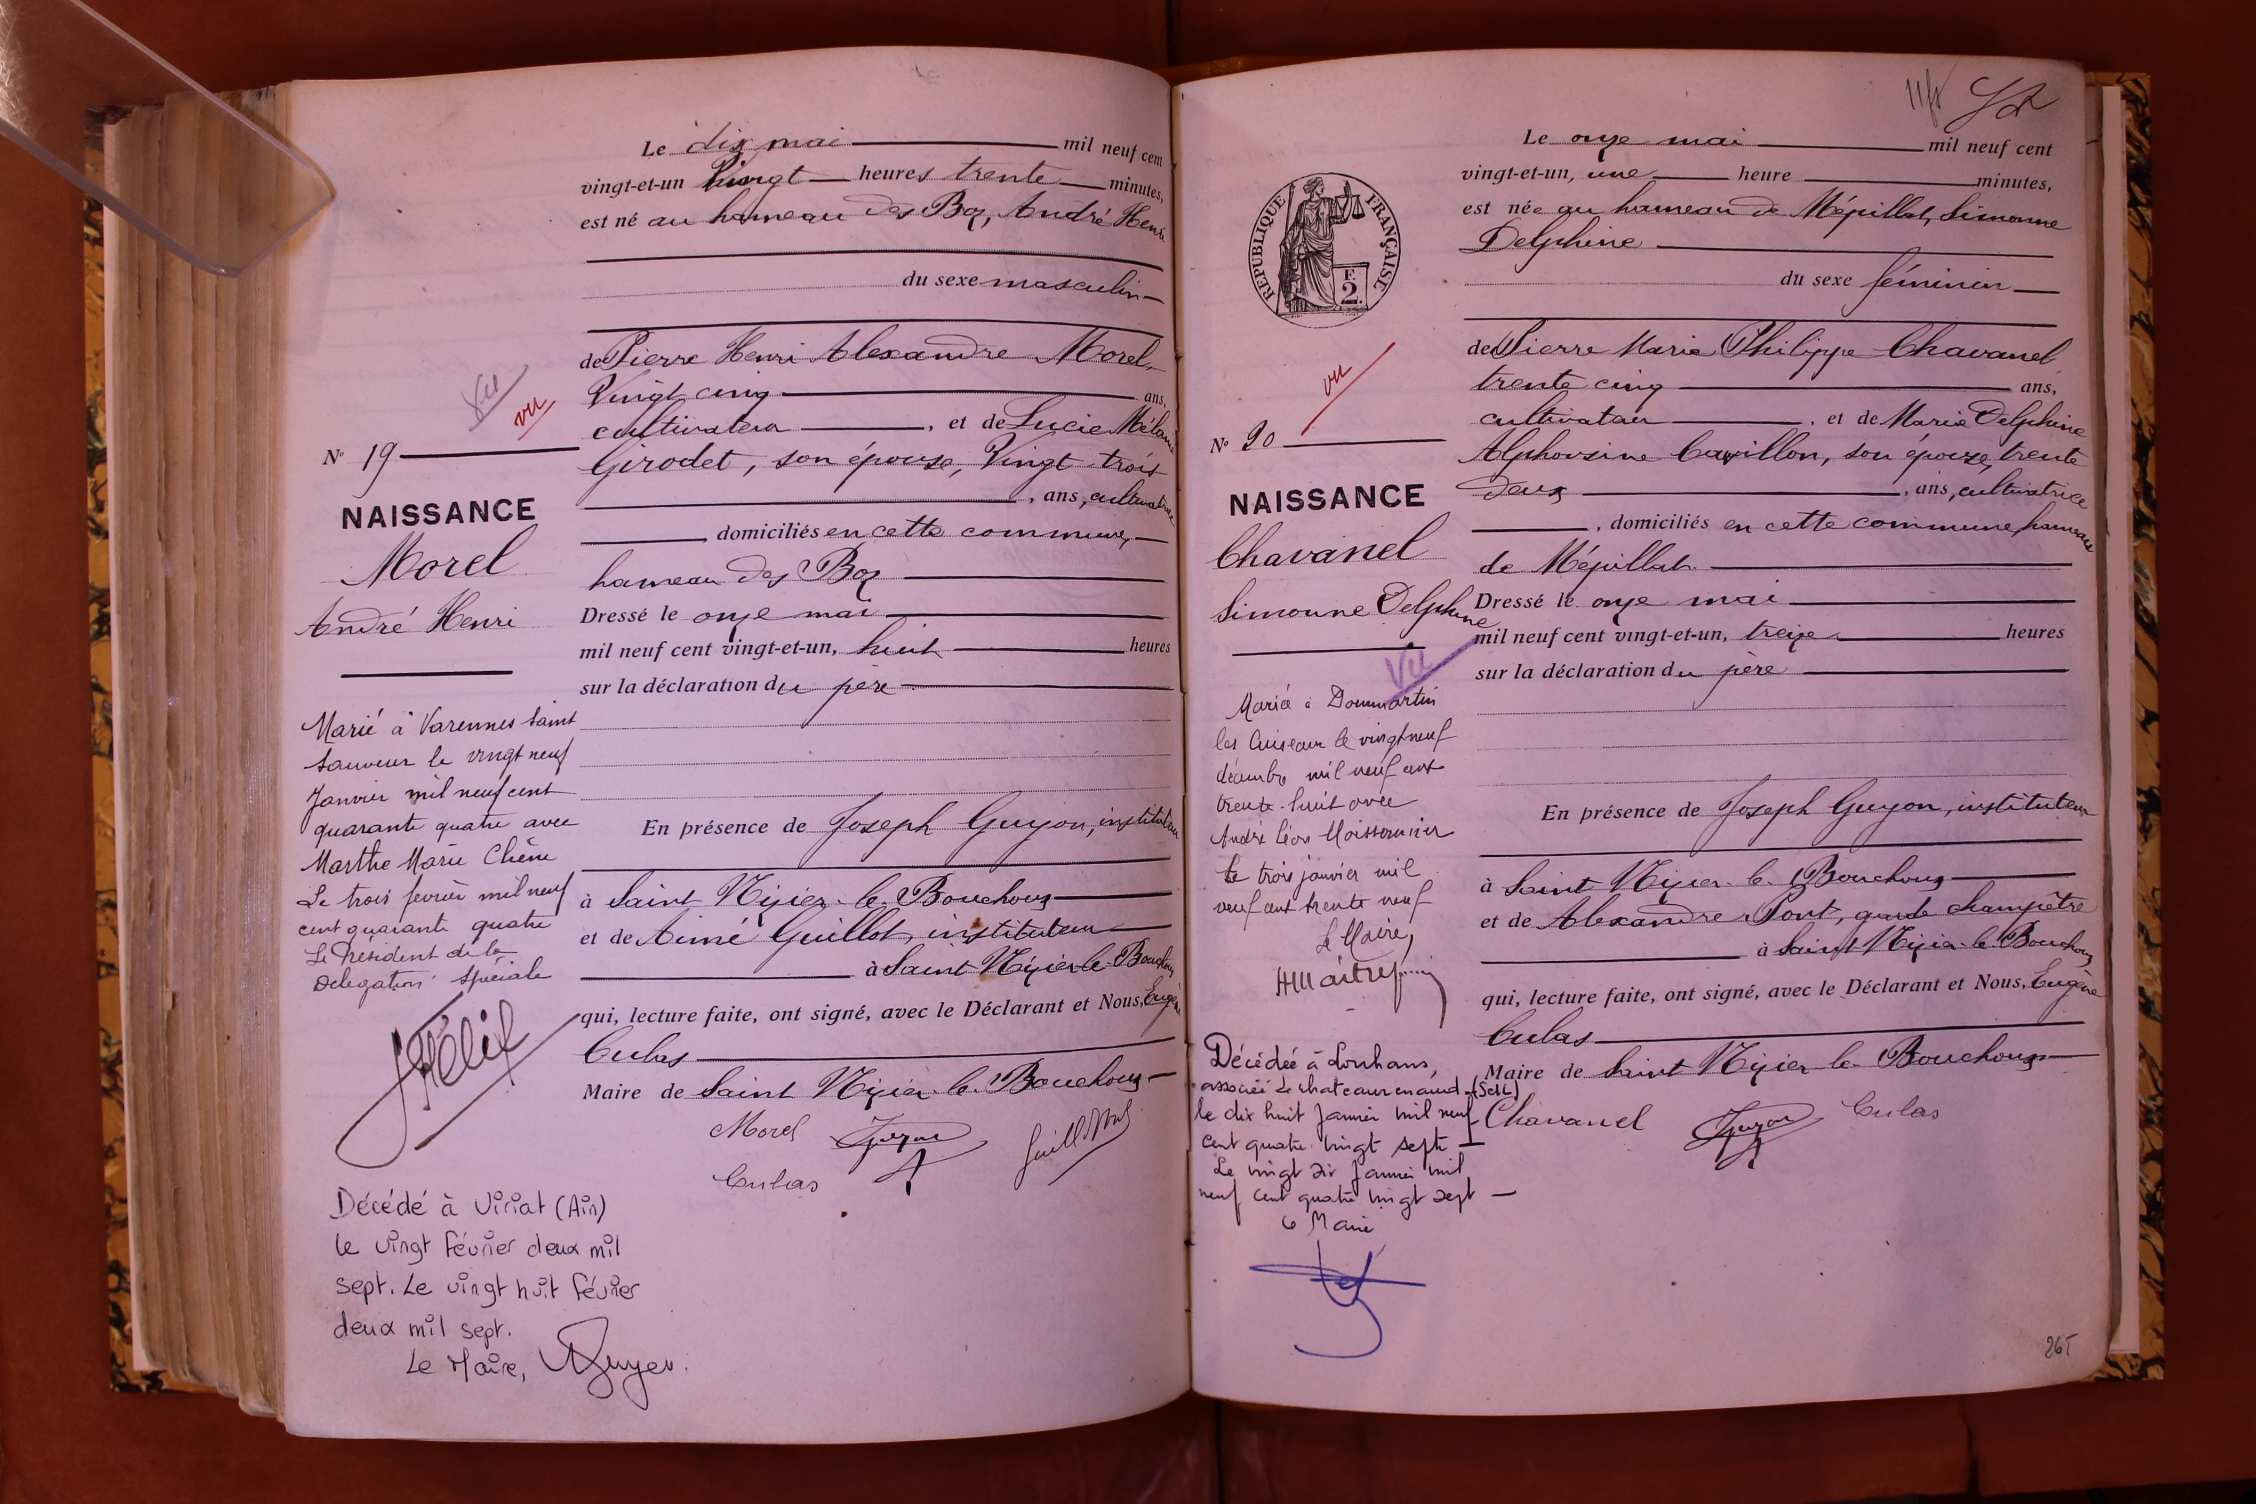 Le dix mai mil neuf cent
vingt-et-un vingt heures trente minutes,
est né au hameau des Boz, André Henri
du sexe masculin
de Pierre Henri Alexandre Morel
Vingt cinq ans,
cultivateur, et de Lucie Mélanie
Girodet, son épouse, Vingt trois
, ans, cultivatrice
domiciliés en cette commune,
hameau des Boz
Dressé le onze mai
mil neuf cent vingt-et-un, huit heures
sur la déclaration du père
En présence de Joseph Guyon, instituteur
à Saint Nizier-le-Bouchoux
et de Aimé Guillot, instituteur
à Saint Nizier-le-Bouchoux
qui, lecture faite, ont signé, avec le Déclarant et Nous, Eugène
Culas
Maire de Saint Nizier-le-Bouchoux
Morel Guyon Guillot
Culas
vu
vu
N° 19
NAISSANCE
Morel
André Henri
Marié à Varennes Saint
Sauveur le vingt neuf
Janvier mil neuf cent
quarante quatre avec
Marthe Marie Chêne
Le trois février mil neuf
cent quarante quatre
Le Président de la
Délégation Spéciale
Décédé à Viriat (Ain)
le vingt février deux mil
sept. Le vingt huit février
deux mil sept.
Le Maire,
Le onze mai mil neuf cent
vingt-et-un, une heure minutes,
est née au hameau de Mépillat, Simonne
Delphine
du sexe féminin
de Pierre Marie Philippe Chavanel
trente cinq ans,
cultivateur, et de Marie Delphine
Alphonsine Cavillon, son épouse, trente
deux, ans, cultivatrice
, domiciliés en cette commune, hameau
de Mépillat
Dressé le onze mai
mil neuf cent vingt-et-un, treize heures
sur la déclaration du père
En présence de Joseph Guyon, instituteur
à Saint Nizier-le-Bouchoux
et de Alexandre Pont, garde champêtre
à Saint Nizier-le-Bouchoux
qui, lecture faite, ont signé, avec le Déclarant et Nous, Eugène
Culas
Maire de Saint Nizier-le-Bouchoux
Chavanel Guyon Culas
RÉPUBLIQUE FRANÇAISE
F.
2.
vu
N° 20
NAISSANCE
Chavanel
Simonne Delphine
Vu
Mariée à Dommartin
les Cuiseaux le vingt neuf
décembre mil neuf cent
trente-huit avec
André Léon Moissonnier
Le trois janvier mil
neuf cent trente neuf
Le Maire,
Décédée à Louhans,
associée de Chateaurenaud (S&L)
le dix huit Janvier mil neuf
cent quatre vingt sept
Le vingt six Janvier mil
neuf cent quatre vingt sept
Le Maire
265